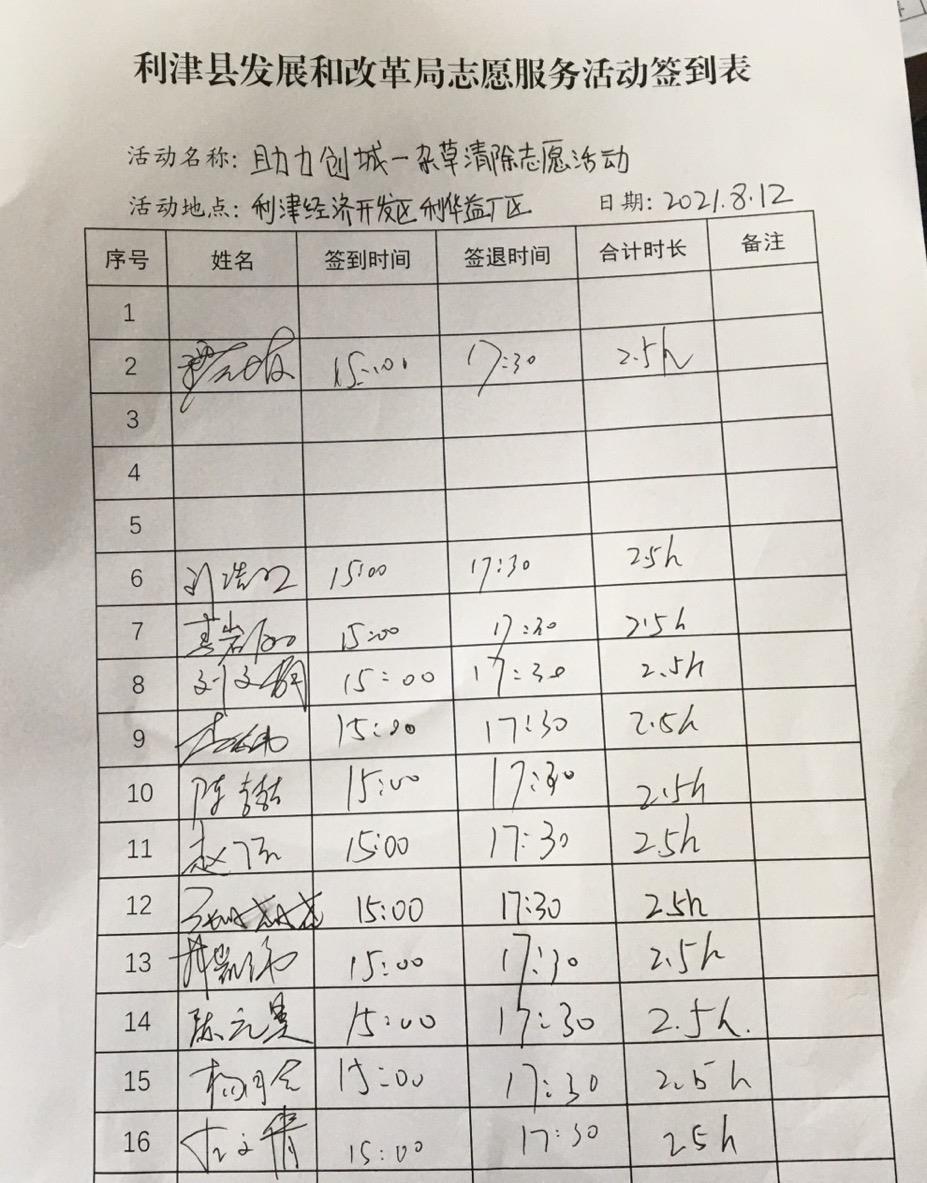 利津县发展和改革局志愿服务活动签到表
活动名称: 助力创城一杂草清除志愿活动
活动地点: 利津经济开发区利华益厂区 日期: 2021.8.12
序号 姓名 签到时间 签退时间 合计时长 备注
1
2 15:00 17:30 2.5h
3
4
5
6 15:00 17:30 2.5h
7 15:00 17:30 2.5h
8 刘文娟 15:00 17:30 2.5h
9 15:00 17:30 2.5h
10 15:00 17:30 2.5h
11 15:00 17:30 2.5h
12 15:00 17:30 2.5h
13 15:00 17:30 2.5h
14 陈元昊 15:00 17:30 2.5h.
15 15:00 17:30 2.5h
16 15:00 17:30 25h